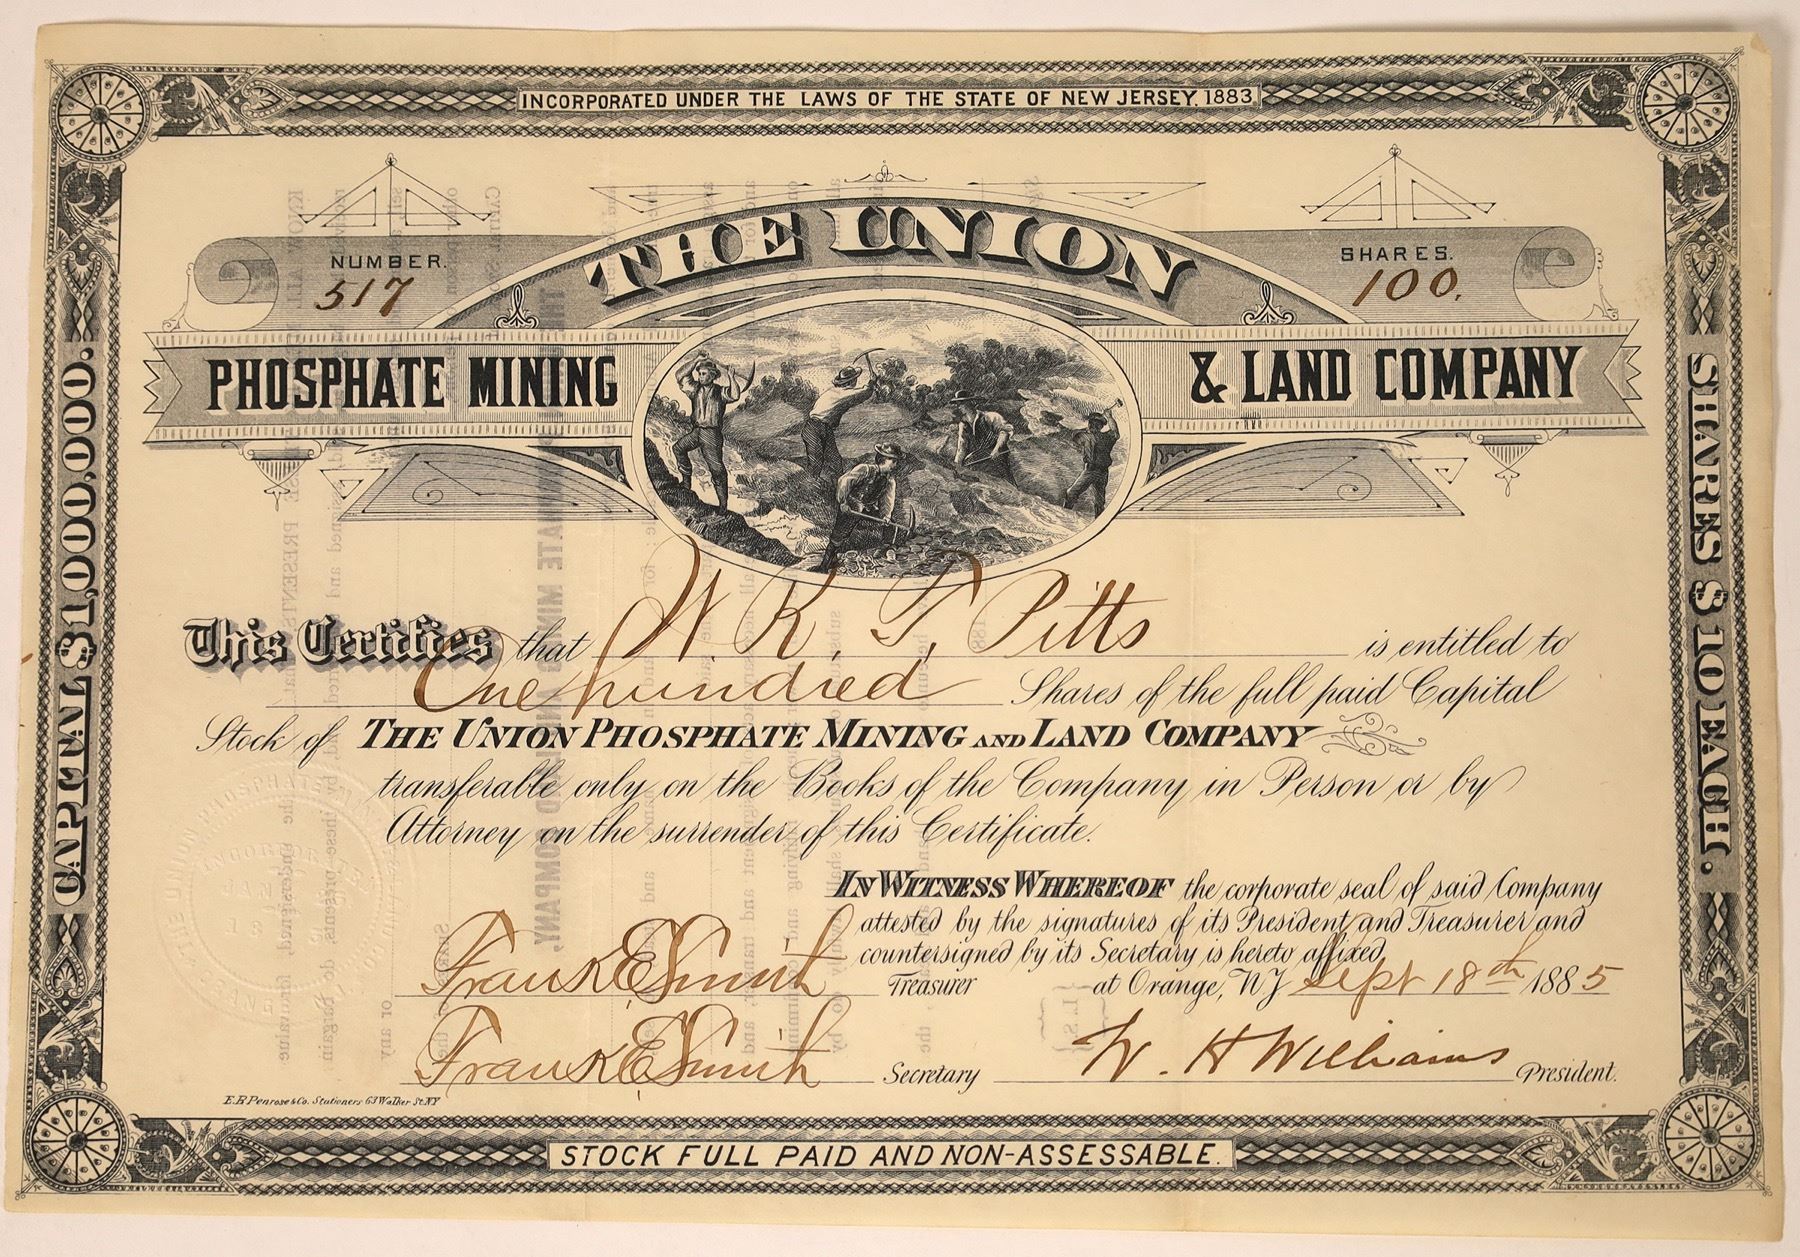 INCORPORATED UNDER THE LAWS OF THE STATE OF NEW JERSEY, 1883.
NUMBER.
517
SHARES.
100.
THE UNION
PHOSPHATE MINING & LAND COMPANY
CAPITAL $1,000,000.
SHARES $10 EACH.
This Certifies that W. R. T. Pitts is entitled to
One hundred Shares of the full paid Capital
Stock of THE UNION PHOSPHATE MINING AND LAND COMPANY
transferable only on the Books of the Company in Person or by
Attorney on the surrender of this Certificate.
IN WITNESS WHEREOF the corporate seal of said Company
attested by the signatures of its President and Treasurer and
countersigned by its Secretary is hereto affixed
at Orange, NJ Sept 18th 1885
Frank E Smith Treasurer
Frank E Smith Secretary
W. H Williams President.
E.B Penrose & Co. Stationers 63 Walker St. NY
STOCK FULL PAID AND NON-ASSESSABLE.
THE UNION PHOSPHATE
INCORPORATED
JAN